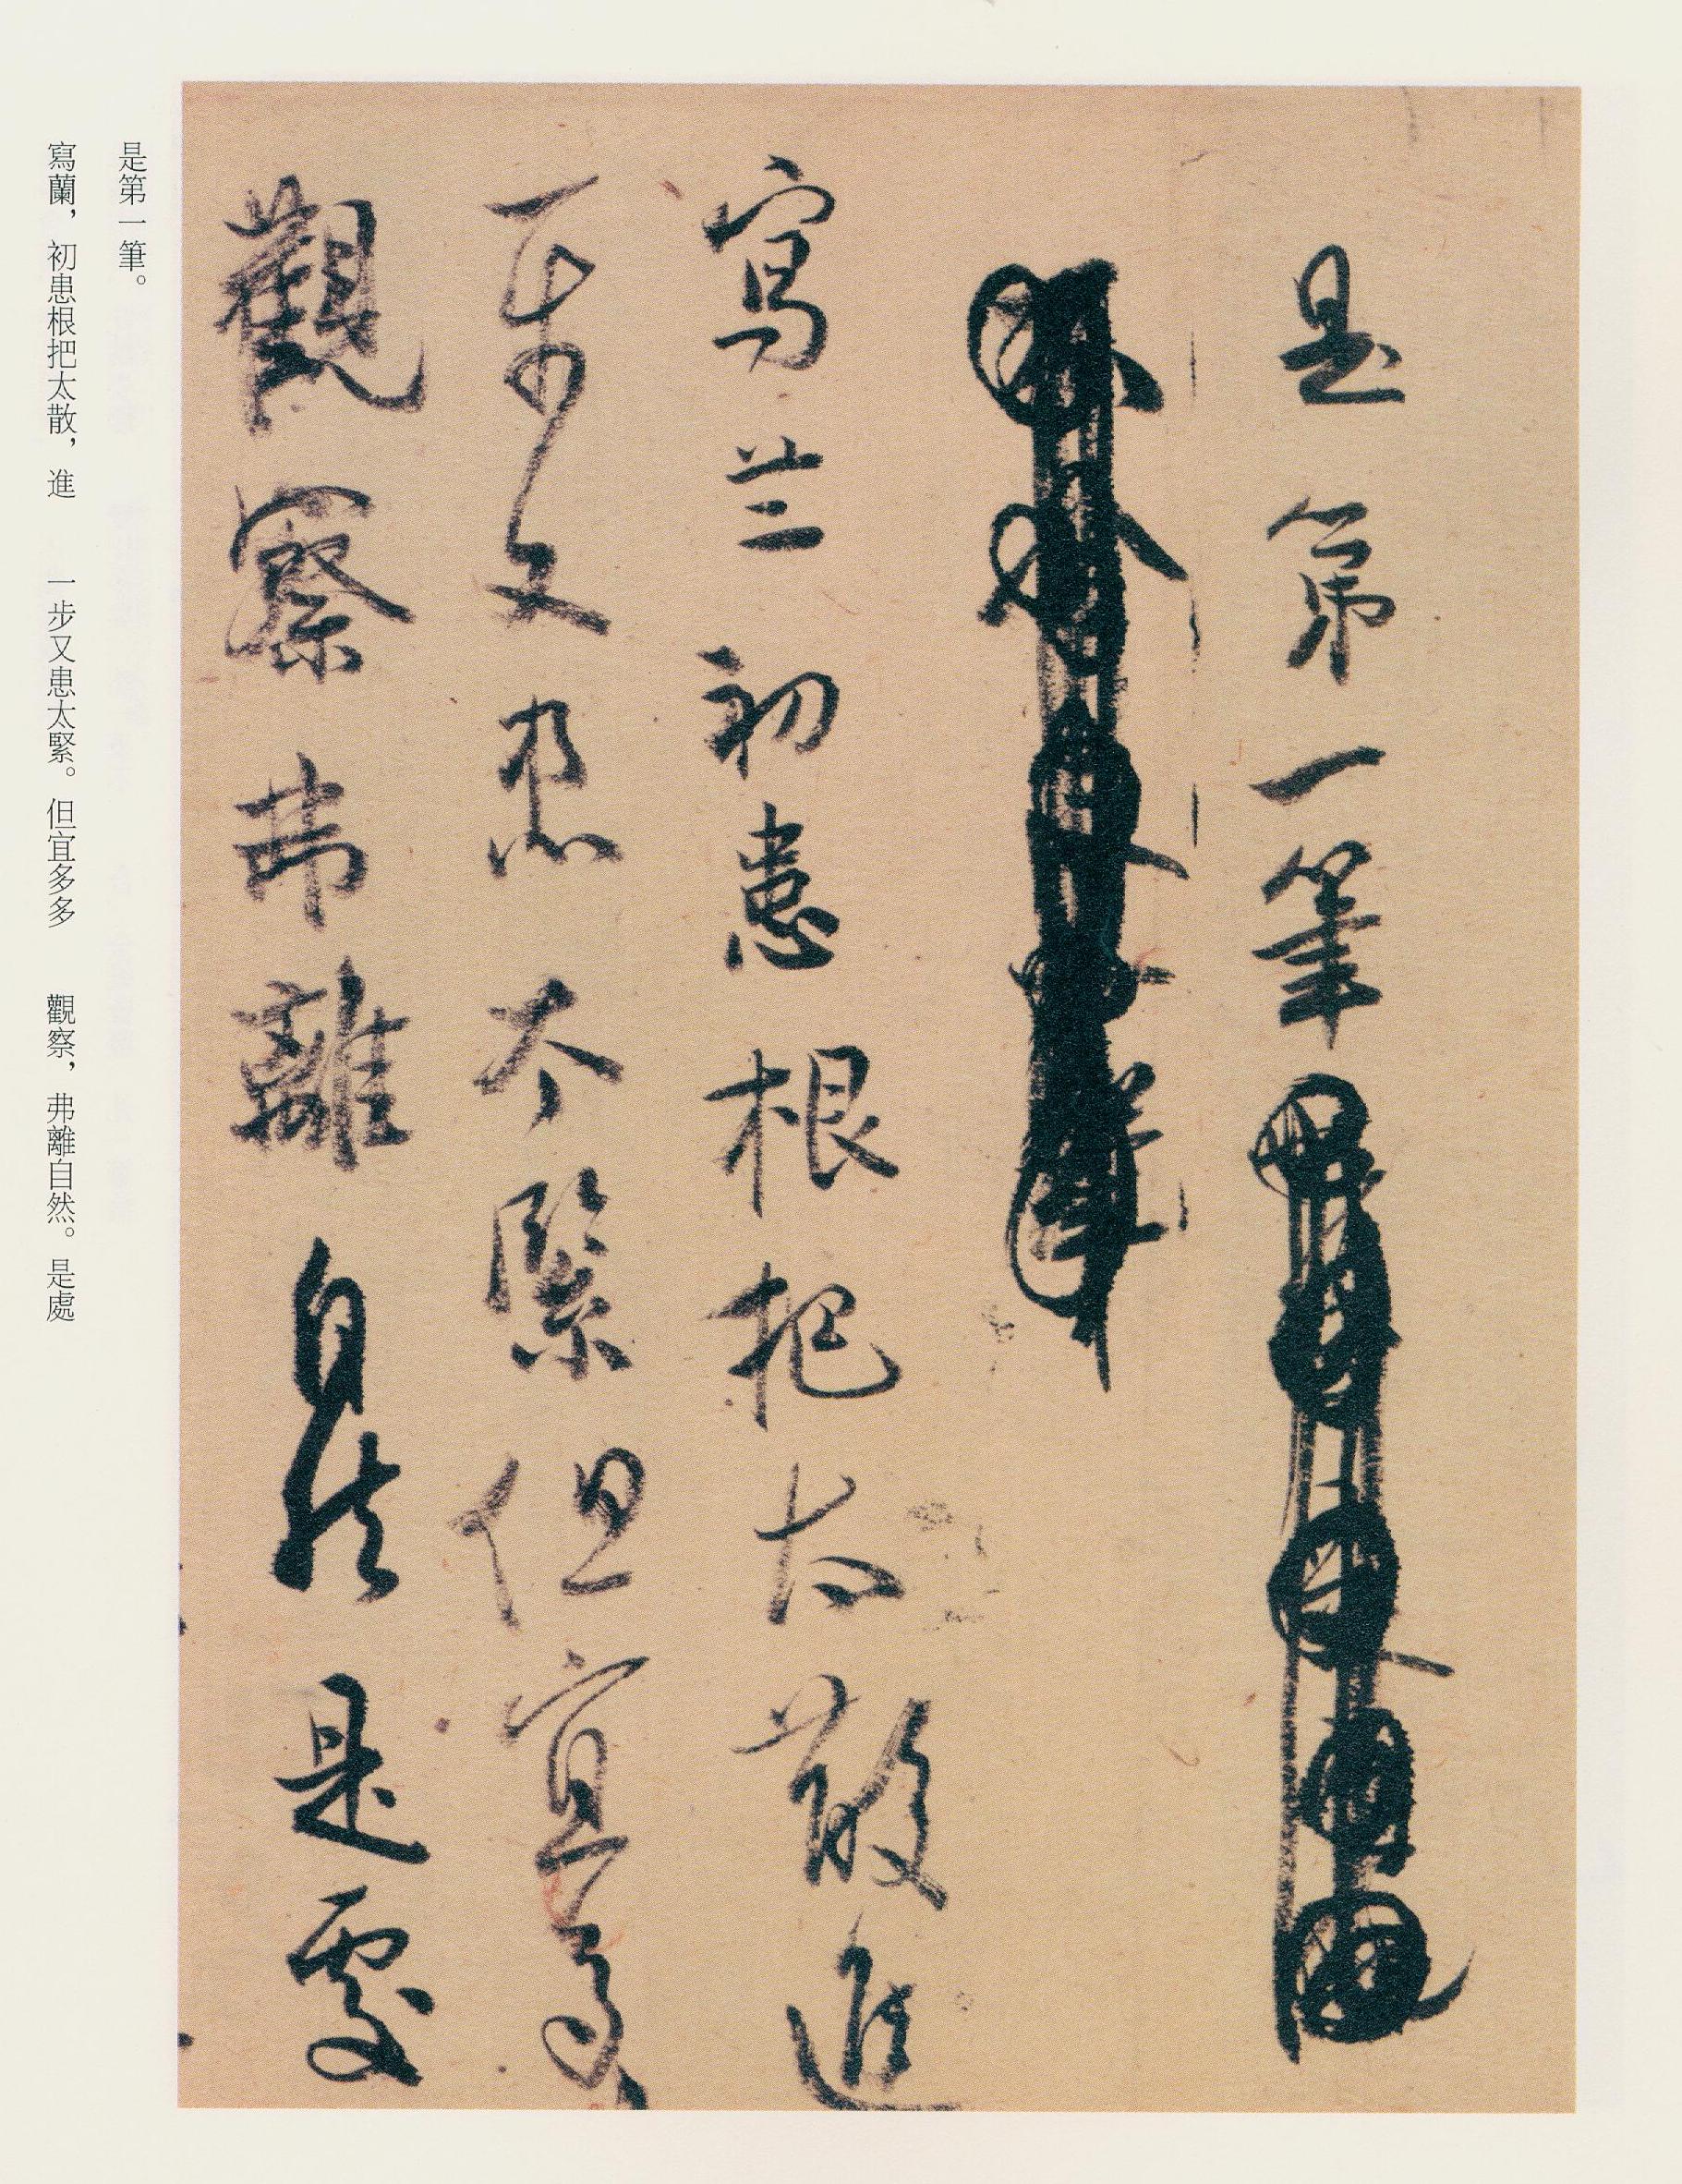 是第一筆
寫兰初患根把太散進
一步又患太緊但宜多多
觀察弗離自然是處
是第一筆。
寫蘭，初患根把太散，進　一步又患太緊。但宜多多　觀察，弗離自然。是處